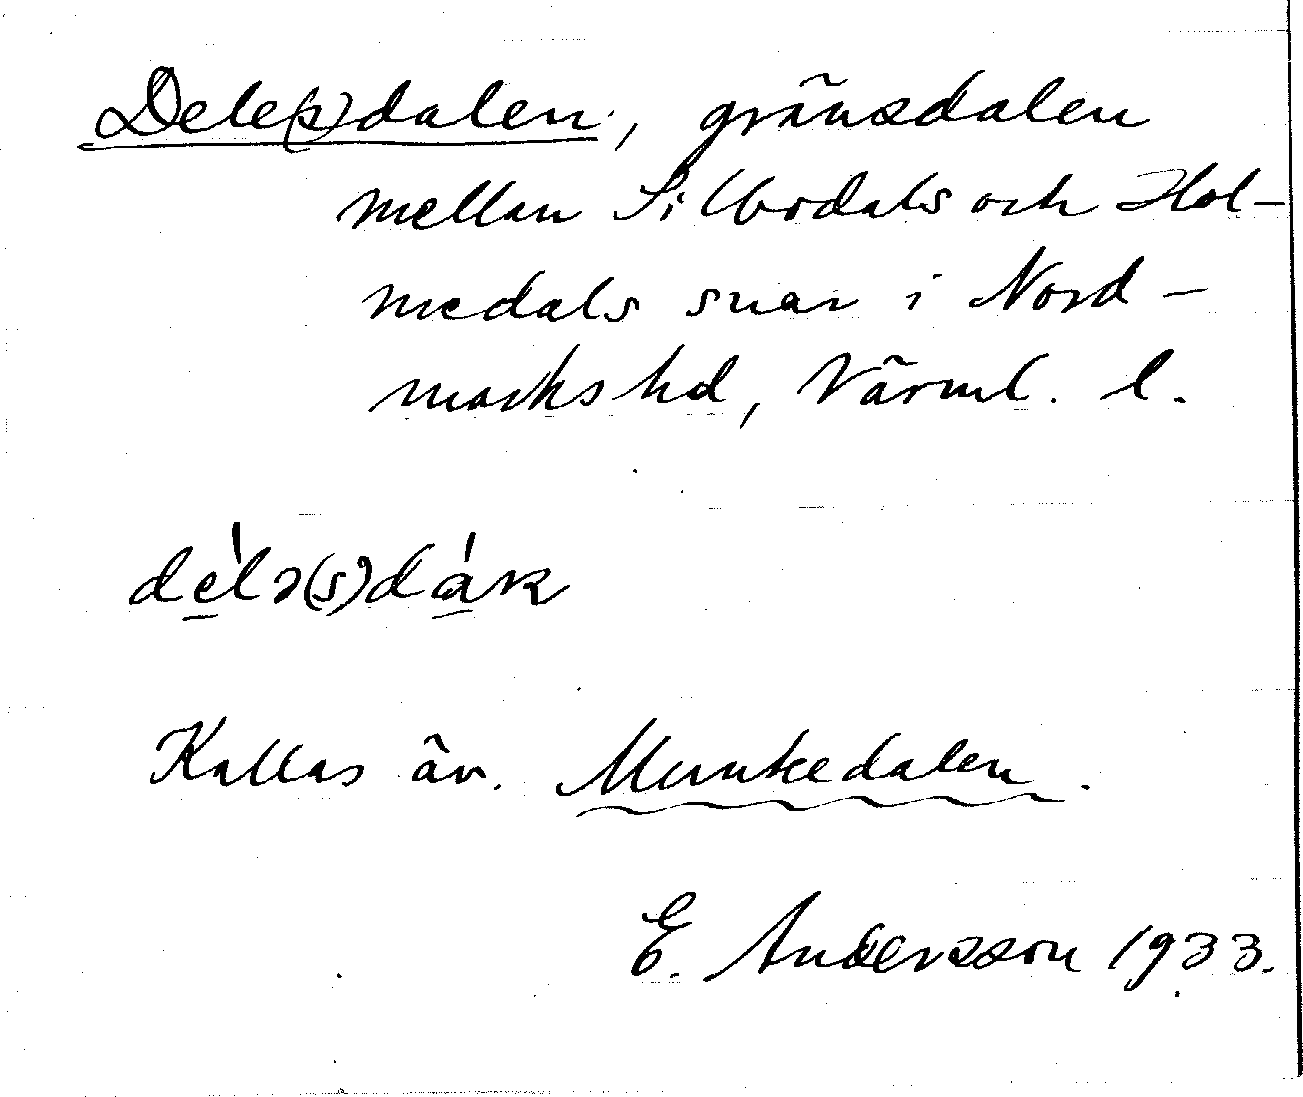 Dele(s)dalen, gränsdalen
mellan Silbodals och Hol-
medals snar i Nord-
markshd, Värml. l.
Kallas äv. Munkedalen.
E. Andersson 1933.